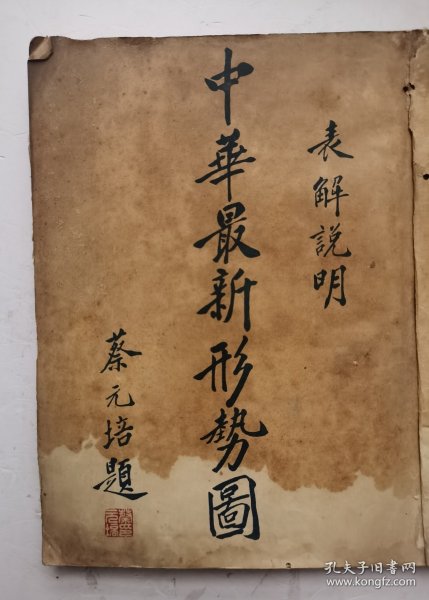 表解説明
中華最新形勢圖
蔡元培題
孔夫子旧书网
www.kongfz.com